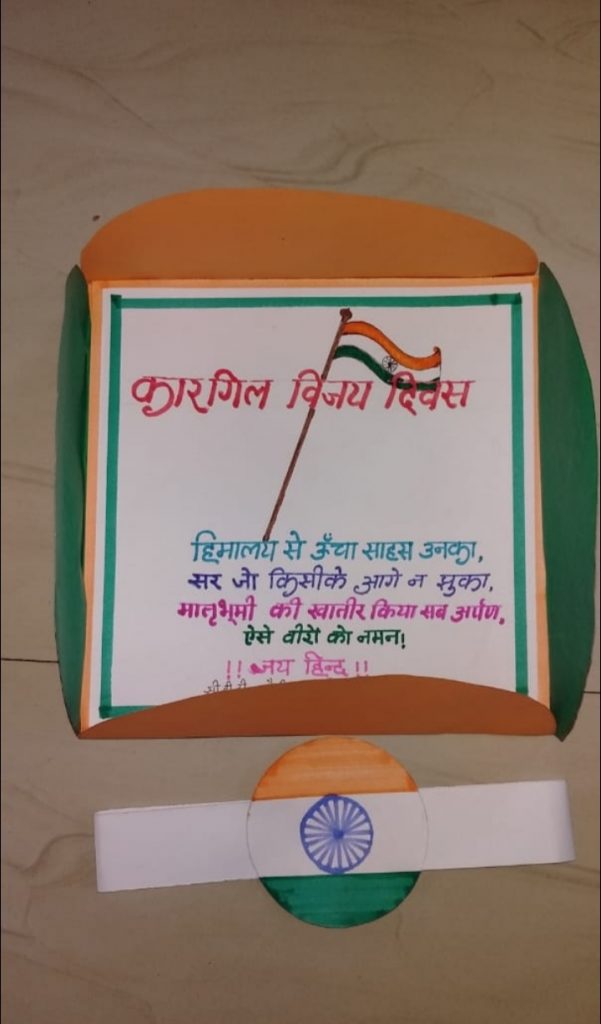 कारगिल विजय दिवस
हिमालय से ऊँचा साहस उनका,
सर जो किसीके आगे न झुका,
मातृभूमी की खातीर किया सब अर्पण,
ऐसे वीरों को नमन!
!! जय हिन्द !!